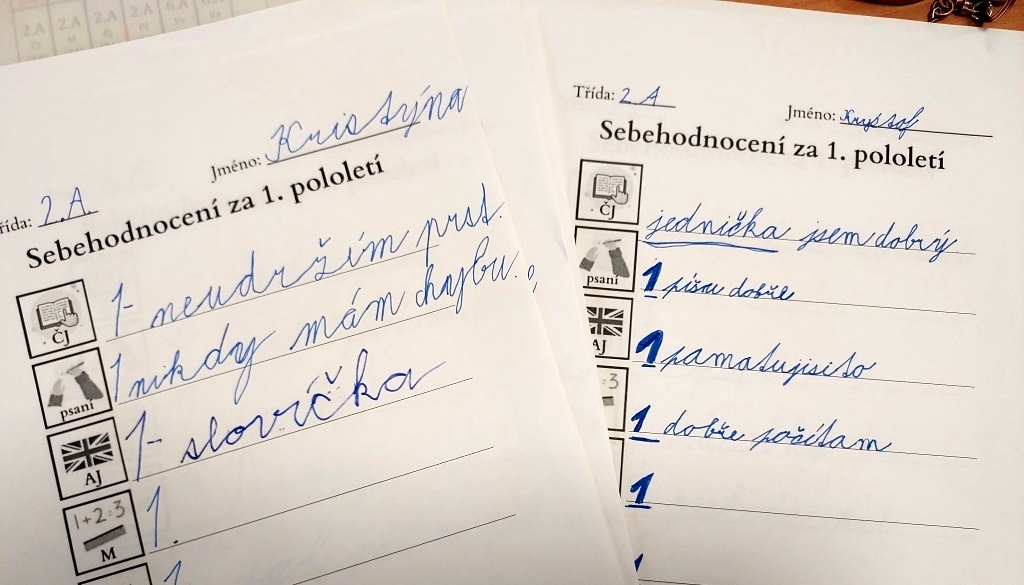 2.A 2.A 2.A 2.A 6.A 6.A
Čj M
Jméno: Kristýna
Třída: 2.A.
Sebehodnocení za 1. pololetí
ČJ 1- neudržím prst.
psaní 1 nikdy mám chybu.
AJ 1- slovíčka
1+2=3
M 1.
1
Třída: 2 A
Jméno: Kryštof
Sebehodnocení za 1. pololetí
ČJ jednička jsem dobrý
psaní 1 píšu dobře
AJ 1 pamatujisito
=3 1 dobře počítam
1